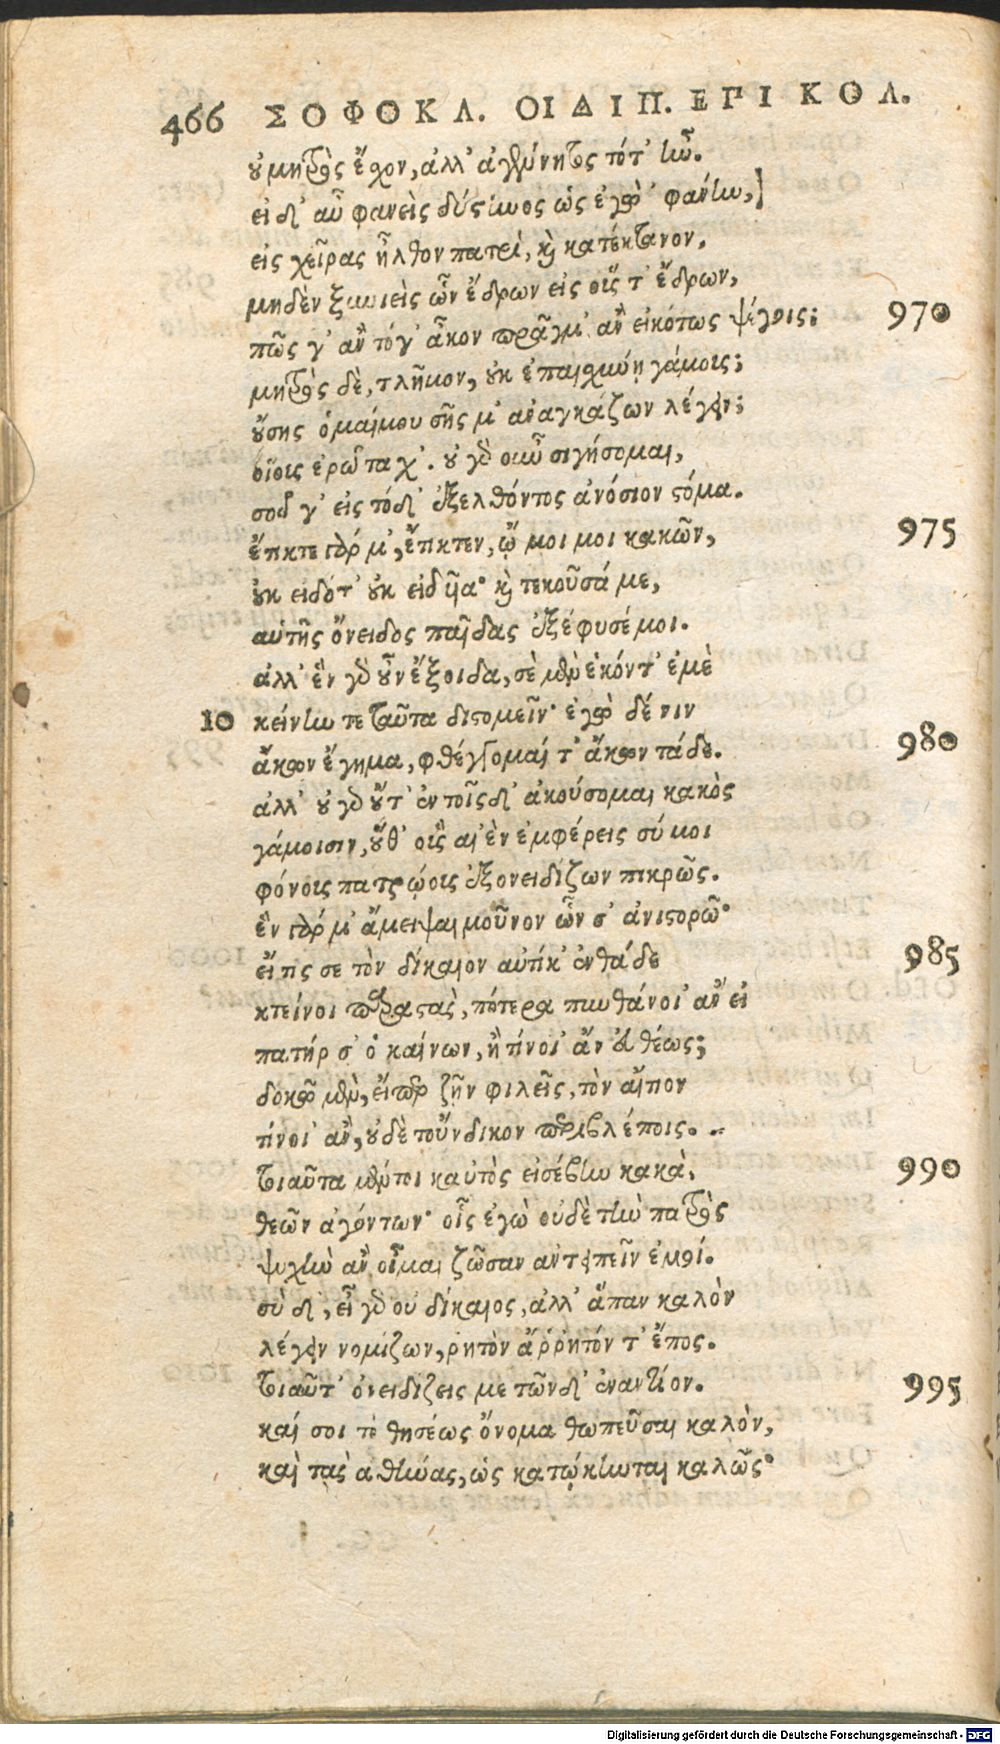 466 ΣΟΦΟΚΛ. ΟΙΔΙΠ. ΕΠΙ ΚΟΛ.
οὐ μητρὸς εἶχον, ἀλλ' ἀγέννητος τότ' ἦν.
εἰ δ' αὖ φανεὶς δύστηνος ὡς ἐγὼ 'φάνην,]
εἰς χεῖρας ἦλθον πατρὶ, καὶ κατέκτανον,
μηδὲν ξυνιεὶς ὧν ἔδρων εἰς οὕς τ' ἔδρων,
πῶς γ' ἂν τόγ' ἆκον πρᾶγμ' ἂν εἰκότως ψέγοις; 970
μητρὸς δὲ, τλῆμον, οὐκ ἐπαισχύνῃ γάμοις;
οὔσης ὁμαίμου σῆς μ' ἀναγκάζων λέγειν;
οἵοις ἐρῶ ταχ'. οὐ γὰρ οὖν σιγήσομαι,
σοῦ γ' εἰς τόδ' ἐξελθόντος ἀνόσιον στόμα.
ἔτικτε γάρ μ', ἔτικτεν, ὤ μοι μοι κακῶν, 975
οὐκ εἰδότ' οὐκ εἰδῦῖα· καὶ τεκοῦσά με,
αὑτῆς ὄνειδος παῖδας ἐξέφυσέ μοι.
ἀλλ' ἓν γὰρ οὖν ἔξοιδα, σὲ μὲν ἑκόντ' ἐμὲ
10 κείνην τε ταῦτα δυστομεῖν· ἐγὼ δέ νιν
ἄκων ἔγημα, φθέγγομαί τ' ἄκων τάδε. 980
ἀλλ' οὐ γὰρ οὔτ' ἐν τοῖς δ' ἀκούσομαι κακὸς
γάμοισιν, οὔθ' οὓς αἰὲν ἐμφέρεις σύ μοι
φόνοις πατρῴοις ἐξονειδίζων πικρῶς.
ἓν γάρ μ' ἄμειψαι μοῦνον ὧν σ' ἀνιστορῶ·
εἴ τις σε τὸν δίκαιον αὐτίκ' ἐνθάδε 985
κτείνοι παραστὰς, πότερα πυνθάνοι' ἂν εἰ
πατήρ σ' ὁ καίνων, ἢ τίνοι' ἂν εὐθέως;
δοκῶ μὲν, εἴπερ ζῆν φιλεῖς, τὸν αἴτιον
τίνοι' ἂν, οὐδὲ τοὔνδικον περιβλέποις.
τοιαῦτα μέντοι καὐτὸς εἰσέβην κακὰ, 990
θεῶν ἀγόντων· οἷς ἐγὼ οὐδὲ τὴν πατρὸς
ψυχὴν ἂν οἶμαι ζῶσαν ἀντειπεῖν ἐμοί.
σὺ δ', εἶ γὰρ οὐ δίκαιος, ἀλλ' ἅπαν καλὸν
λέγειν νομίζων, ρητὸν ἄῤῥητόν τ' ἔπος.
τοιαῦτ' ὀνειδίζεις με τῶνδ' ἐναντίον. 995
καί σοι τὸ θησέως ὄνομα θωπεῦσαι καλὸν,
καὶ τὰς ἀθήνας, ὡς κατῴκηνται καλῶς·
Digitalisierung gefördert durch die Deutsche Forschungsgemeinschaft - DFG